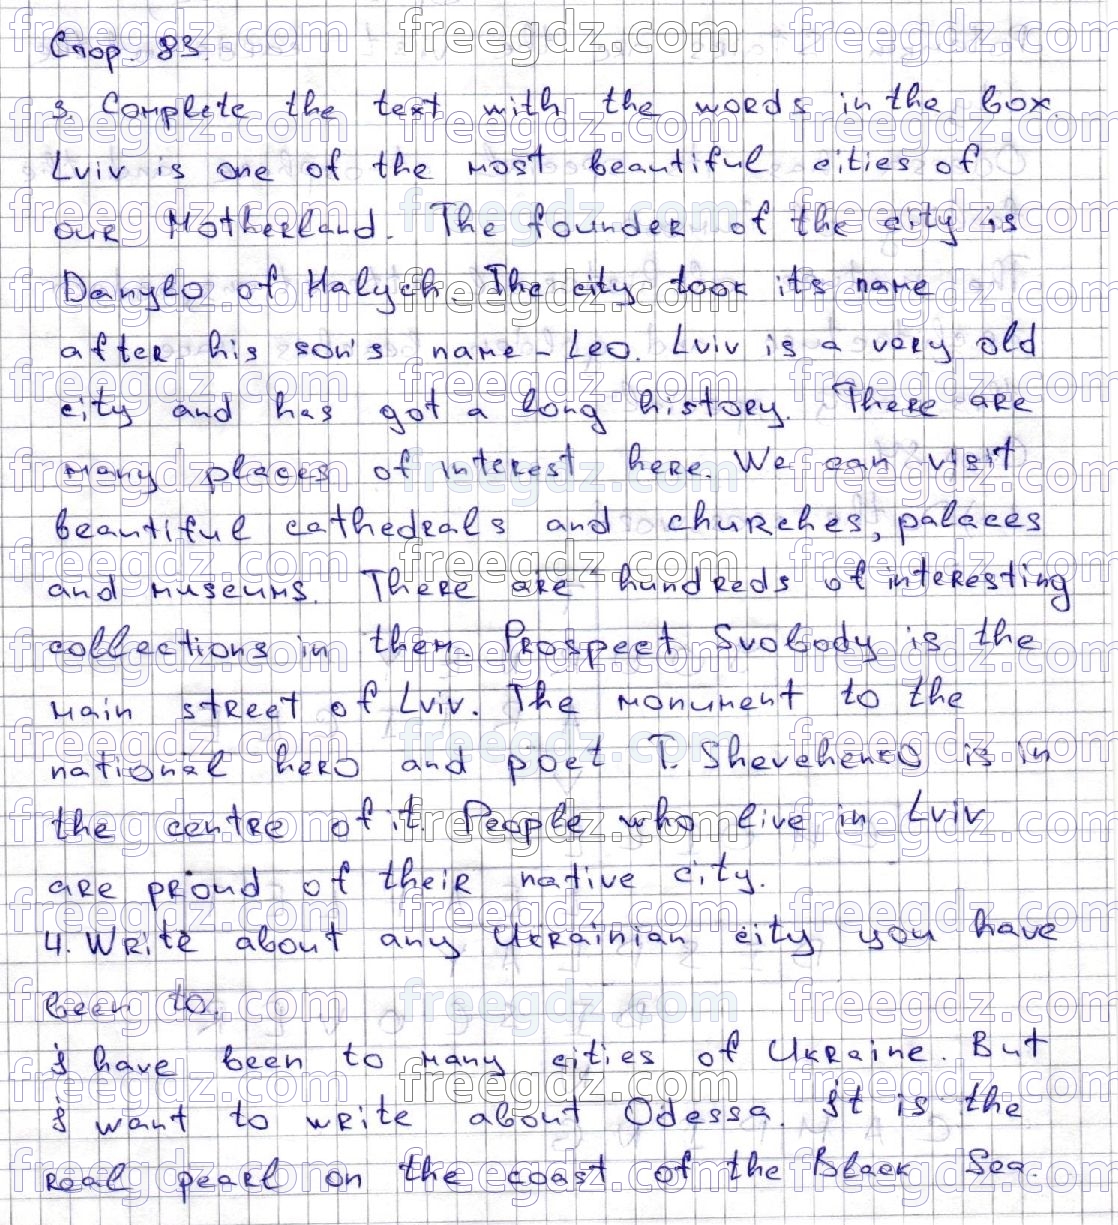 Стор. 83.
3. Complete the text with the words in the box.
Lviv is one of the most beautiful cities of
our Motherland. The founder of the city is
Danylo of Halych. The city took its name
after his son's name - Leo. Lviv is a very old
city and has got a long history. There are
many places of interest here. We can visit
beautiful cathedrals and churches, palaces
and museums. There are hundreds of interesting
collections in them. Prospect Svobody is the
main street of Lviv. The monument to the
national hero and poet T. Shevchenko is in
the centre of it. People who live in Lviv
are proud of their native city.
4. Write about any Ukrainian city you have
been to.
I have been to many cities of Ukraine. But
I want to write about Odessa. It is the
real pearl on the coast of the Black Sea.